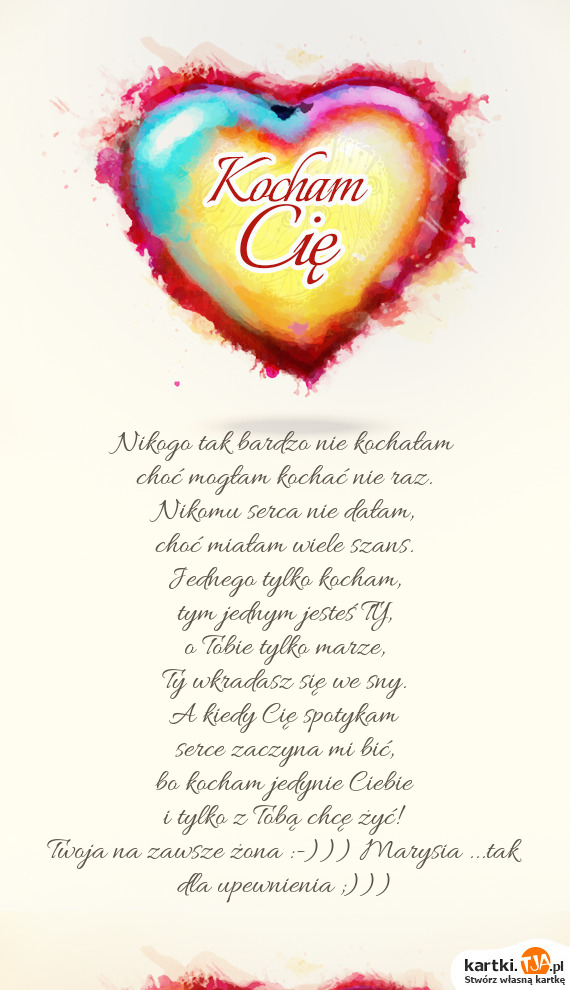 Kocham
Cię
Nikogo tak bardzo nie kochałam
choć mogłam kochać nie raz.
Nikomu serca nie dałam,
choć miałam wiele szans.
Jednego tylko kocham,
tym jednym jesteś TY,
o Tobie tylko marze,
Ty wkradasz się we sny.
A kiedy Cię spotykam
serce zaczyna mi bić,
bo kocham jedynie Ciebie
i tylko z Tobą chcę żyć!
Twoja na zawsze żona :-))) Marysia ...tak
dla upewnienia ;)))
kartki.TJA.pl
Stwórz własną kartkę